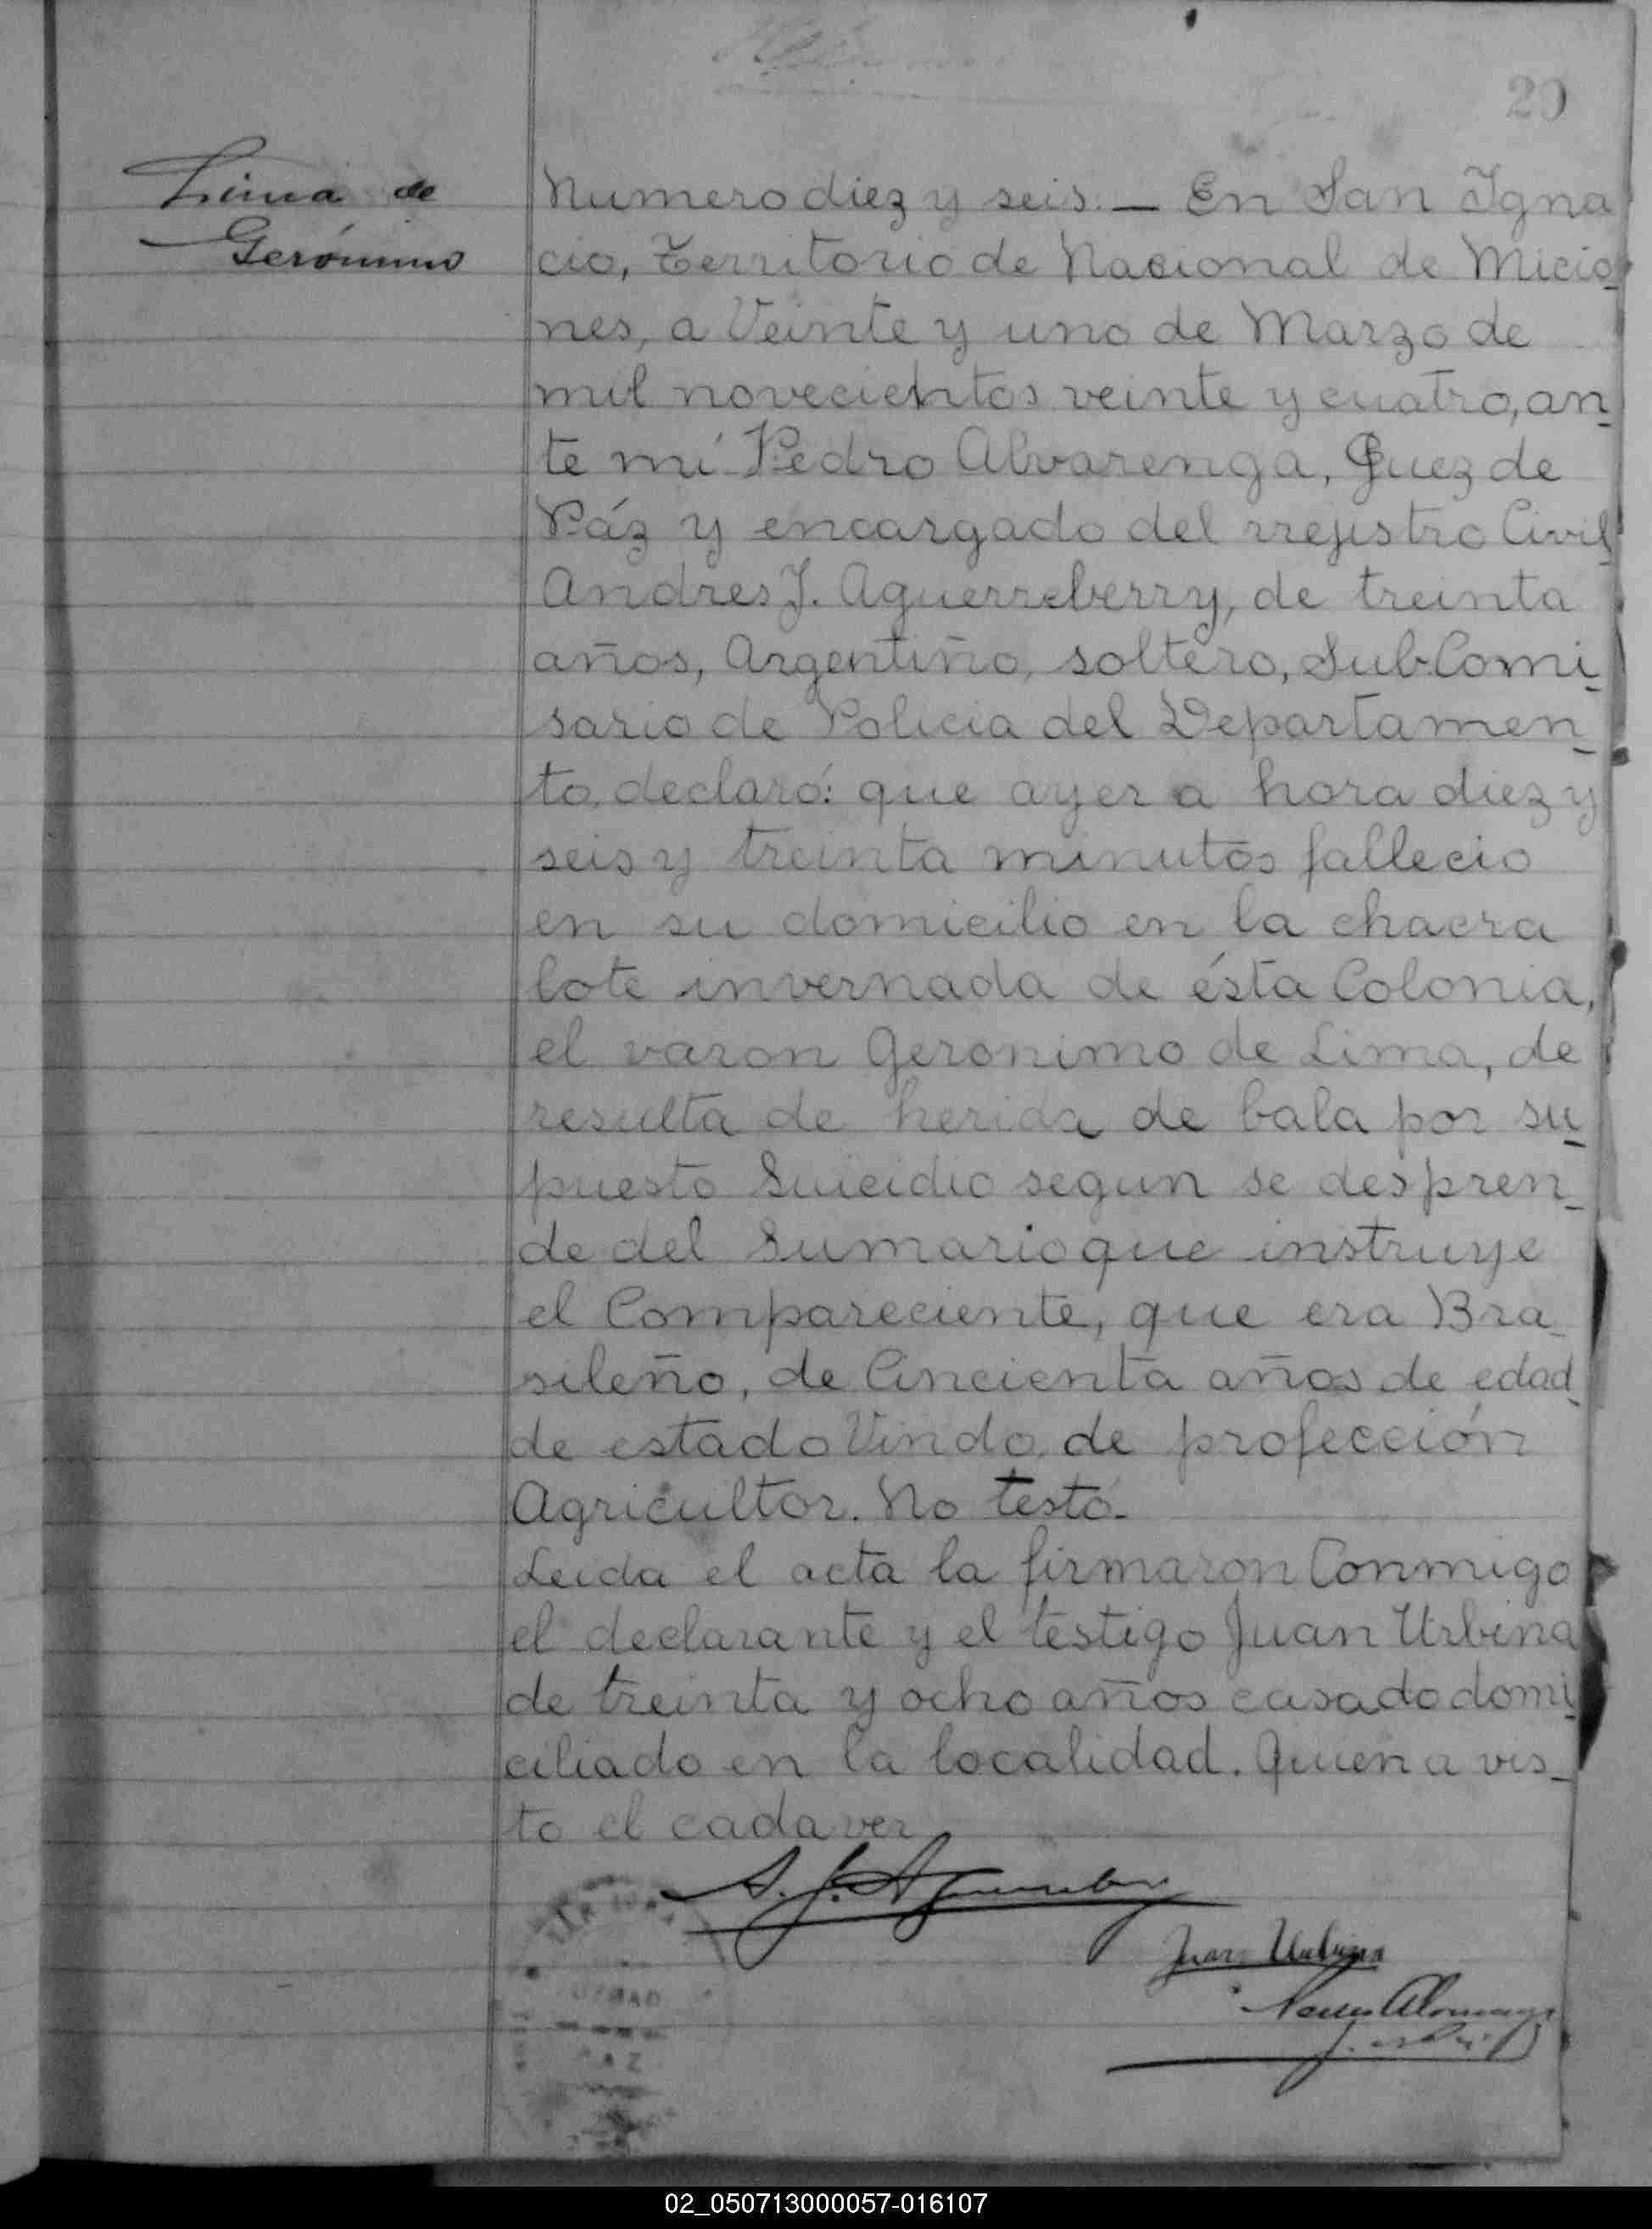 20
Lima de
Gerónimo
Numero diez y seis. — En San Igna
cio, Territorio de Nacional de Micio
nes, a Veinte y uno de Marzo de
mil novecientos veinte y cuatro, an
te mí Pedro Alvarenga, Juez de
Páz y encargado del rrejistro Civil
Andres J. Aguerreberry, de treinta
años, Argentino, soltero, Sub.Comi
sario de Policia del Departamen
to, declaró: que ayer a hora diez y
seis y treinta minutos fallecio
en su domicilio en la chacra
lote invernada de ésta Colonia,
el varon Geronimo de Lima, de
resulta de herida de bala por su
puesto Suicidio segun se despren
de del Sumario que instruye
el Compareciente, que era Bra
sileño, de Cincienta años de edad
de estado Viudo, de profección
Agricultor. No testó.
Leida el acta la firmaron Conmigo
el declarante y el testigo Juan Urbina
de treinta y ocho años casado domi
ciliado en la localidad. Quien a vis
to el cadaver
A. J. Aguerreberry
Juan Urbina
02_050713000057-016107